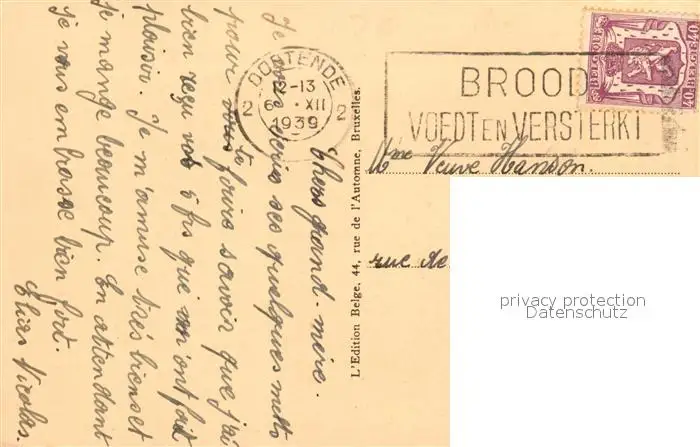 Chère grand-mère.
Je vous écris ces quelques mots
pour vous faire savoir que j'ai
bien reçu vos 5 frs qui m'ont fait
plaisir. Je m'amuse très bien et
je mange beaucoup. En attendant
je vous embrasse bien fort.
Nicolas.
L'Edition Belge, 44, rue de l'Automne, Bruxelles.
OOSTENDE
12-13
6 · XII
1939
2 2
BROOD
VOEDT EN VERSTERKT
BELGIQUE
BELGIE
40
40
Mme Veuve Hanson.
rue de
privacy protection
Datenschutz